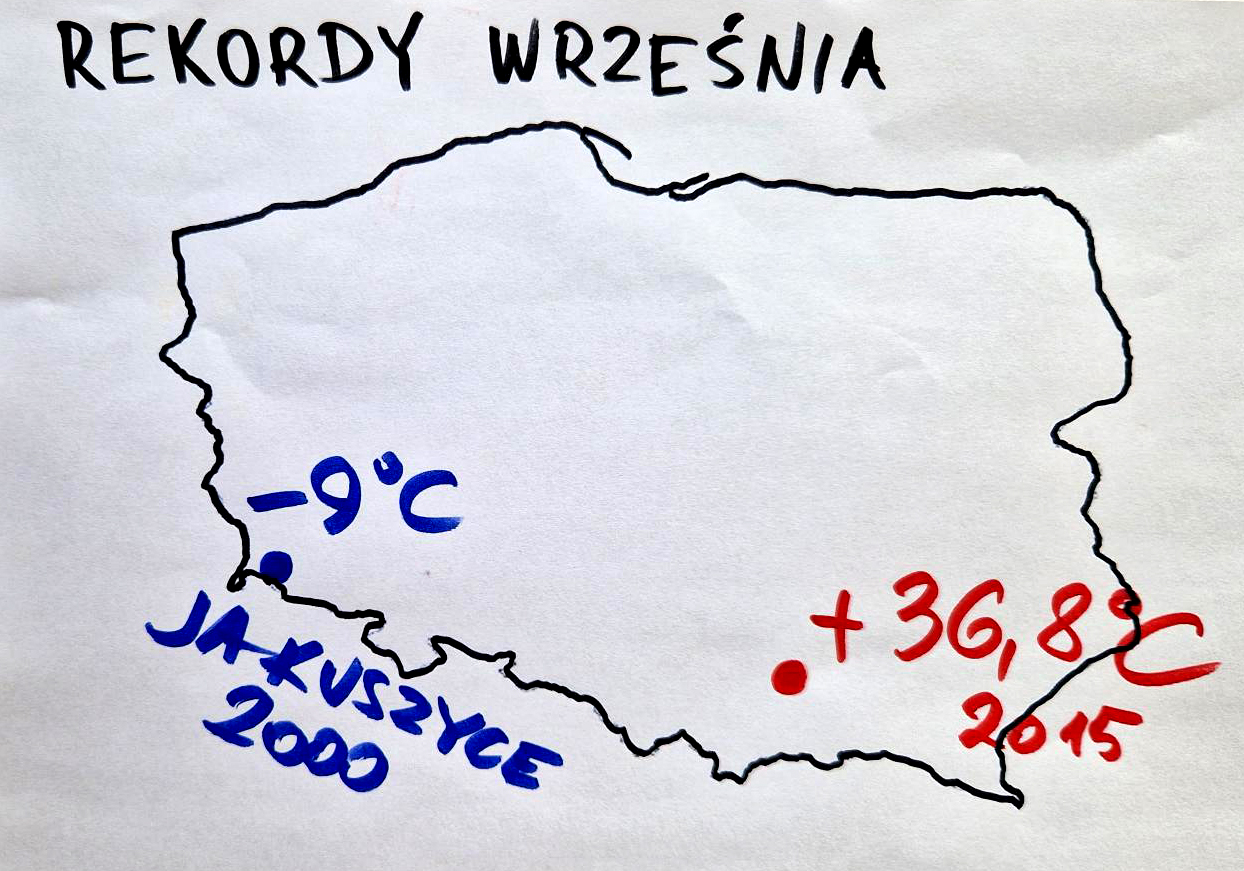 REKORDY WRZEŚNIA
-9°C
JAKUSZYCE
2000
+36,8°C
2015